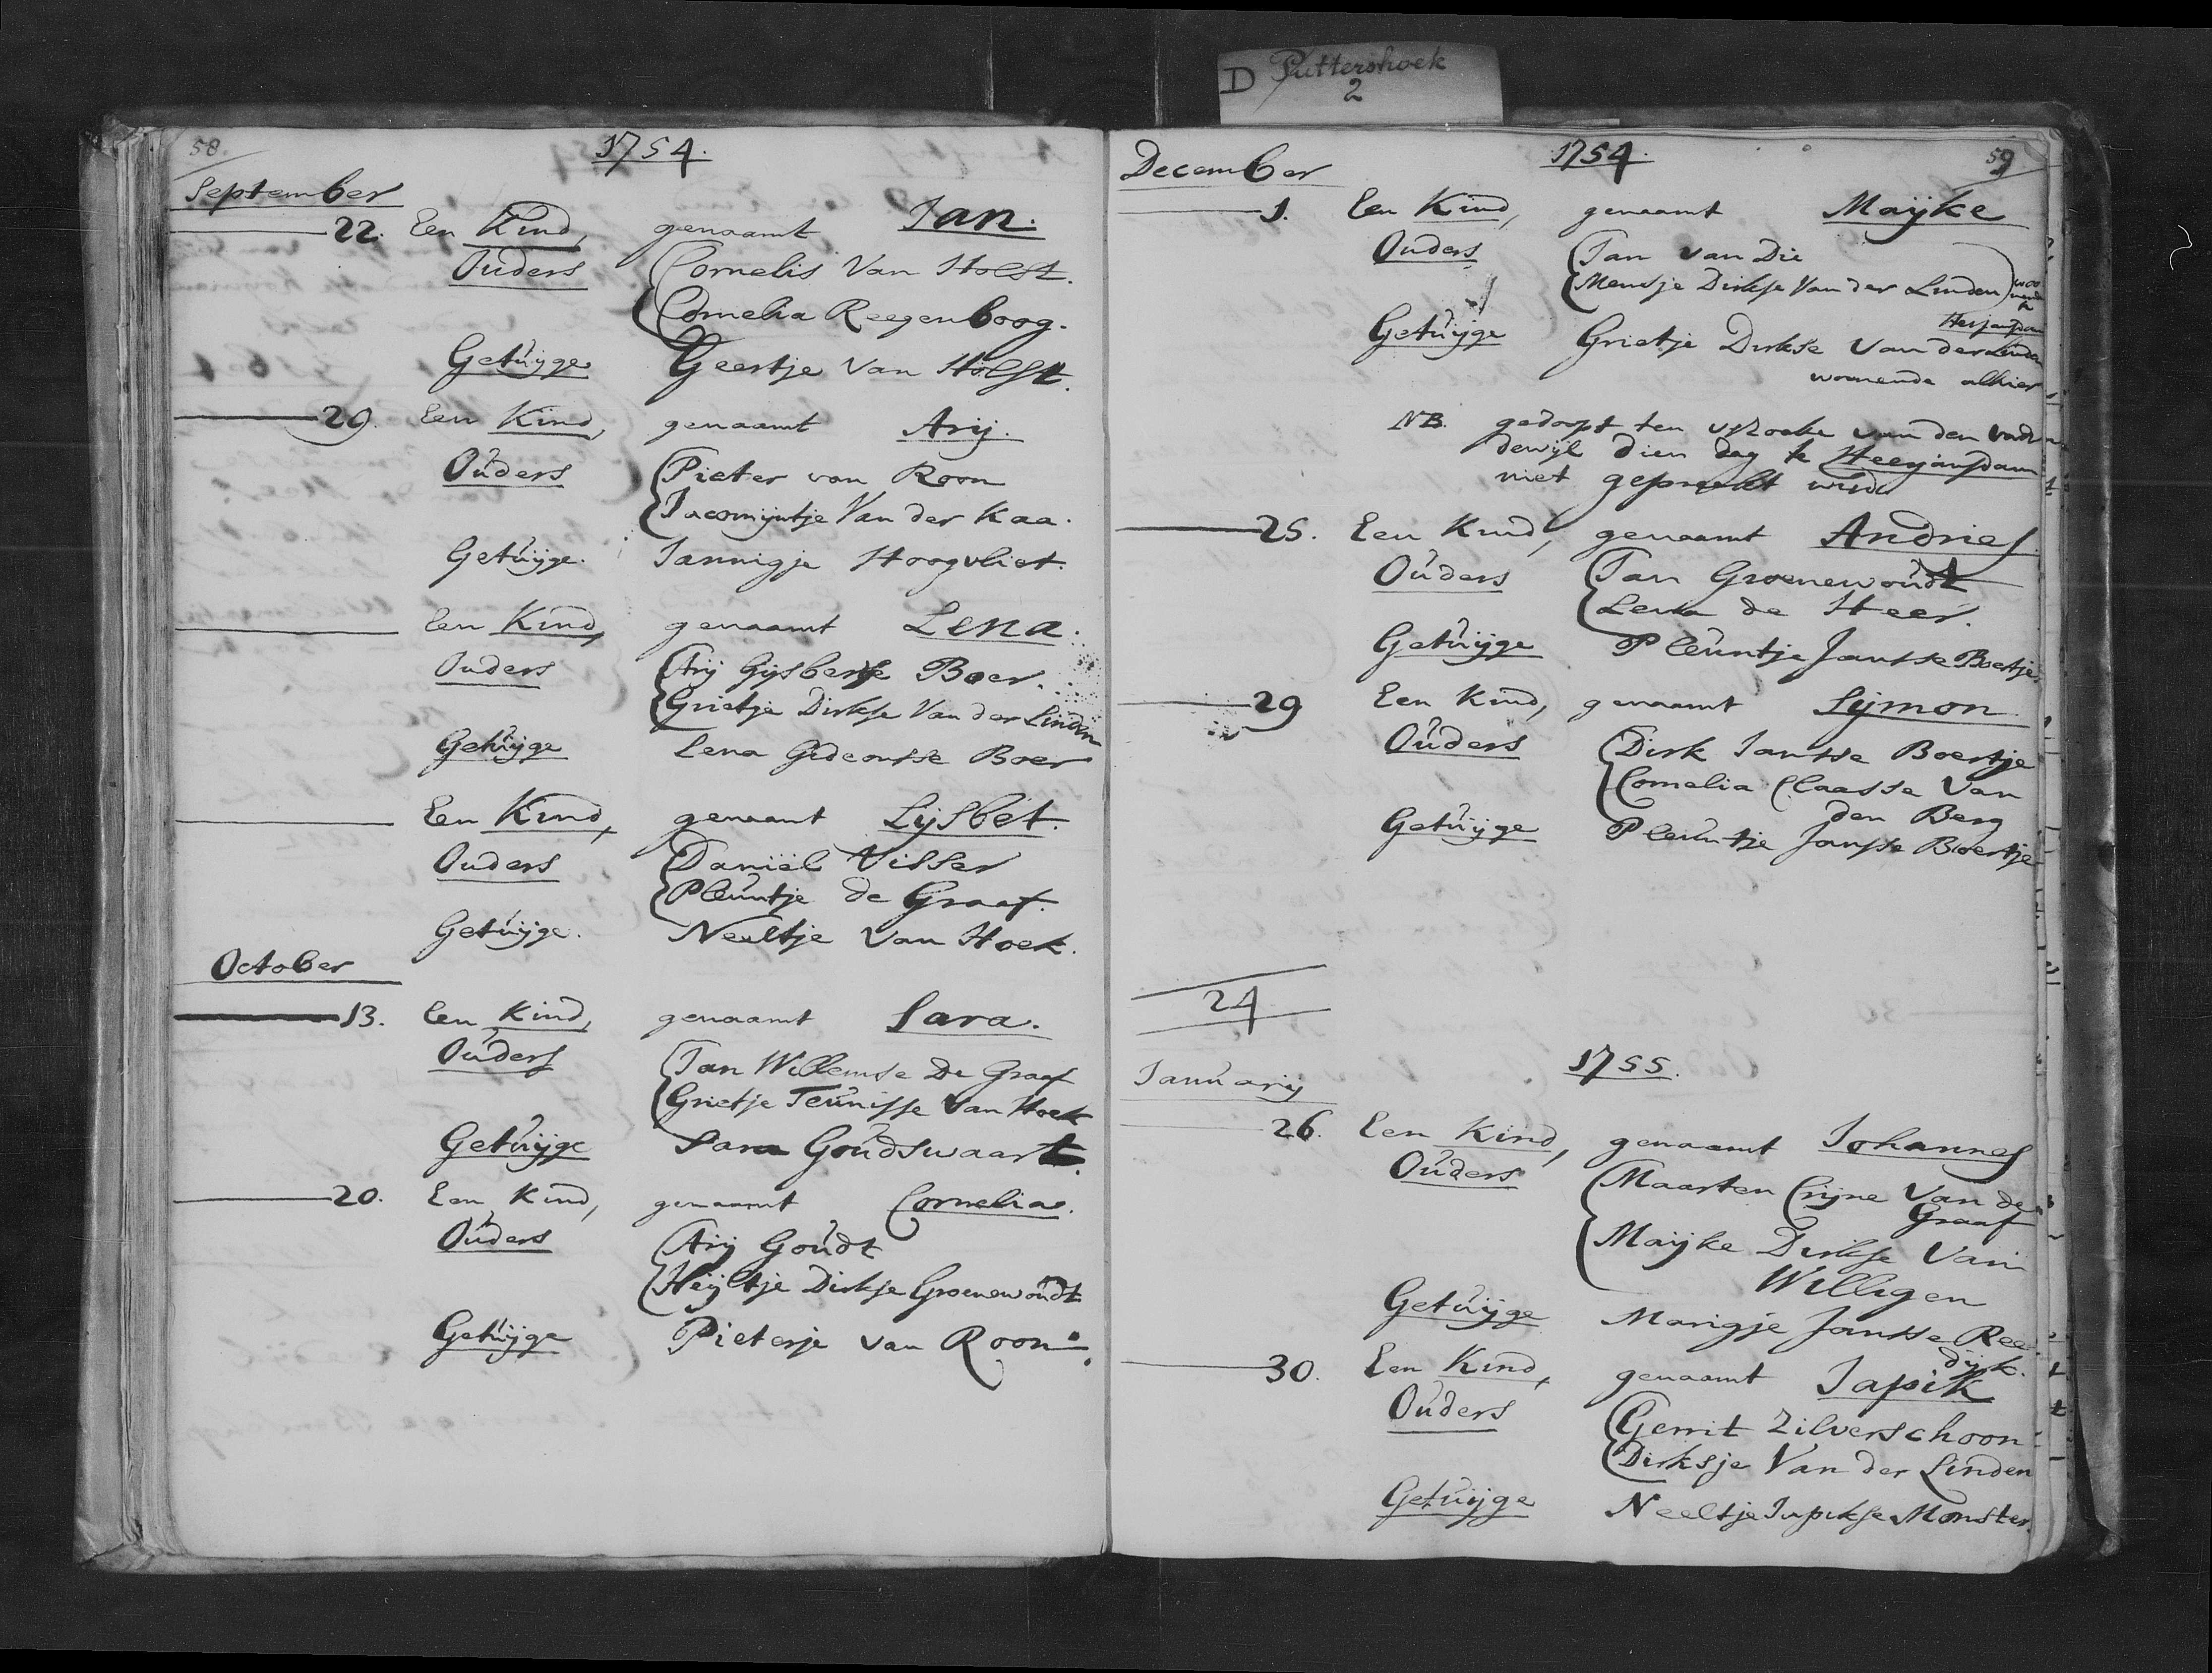 D Puttershoek
2
58.
1754.
September
22. Een Kind, genaamt Jan.
Ouders Cornelis Van Holst.
Cornelia Reegenboog.
Getuijge Geertje Van Holst.
29. Een Kind, genaamt Arij.
Ouders Pieter van Roon
Jacomijntje Van der Kaa.
Getuijge. Jannigje Hoogvliet.
Een Kind, genaamt Lena.
Ouders Arij Gijsbertse Boer.
Grietje Dirkse Van der Linden
Getuijge Lena Gideonsse Boer
Een Kind, genaamt Lijsbet.
Ouders Daniël Visser
Pleuntje de Graaf.
Getuijge. Neeltje Van Hoek.
October
13. Een Kind, genaamt Sara.
Ouders Jan Willemse De Graaf
Grietje Teunisse Van Hoek
Getuijge Sara Goudswaart.
20. Een Kind, genaamt Cornelia.
Ouders Arij Goudt
Heijltje Dirkse Groenewoudt
Getuijge Pietersje van Roon.
59
1754.
December
1. Een Kind, genaamt Maijke
Ouders Jan van Die
Mensje Dirkse Van der Linden woo
nende
te
Heerjansdam
Getuijge Grietje Dirkse Van der Linden
woonende alhier
NB. gedoopt ten vzoeke van den vader
dewijl dien dag te Heerjansdam
niet gepreekt wird
25. Een Kind, genaamt Andries.
Ouders Jan Groenewoudt
Lena de Heer.
Getuijge Pleuntje Jansse Boertje
29 Een Kind, genaamt Sijmon
Ouders Dirk Jansse Boertje
Cornelia Claasse Van
den Berg
Getuijge Pleuntje Jansse Boertje
24
1755.
Januarij
26. Een Kind, genaamt Johannes
Ouders Maarten Crijne Van de
Graaf
Maijke Dirkse Van
Willigen
Getuijge Marigje Jansse Ree
dijk.
30. Een Kind, genaamt Japik
Ouders Gerrit Zilverschoon
Dirksje Van der Linden
Getuijge Neeltje Japikse Monster.